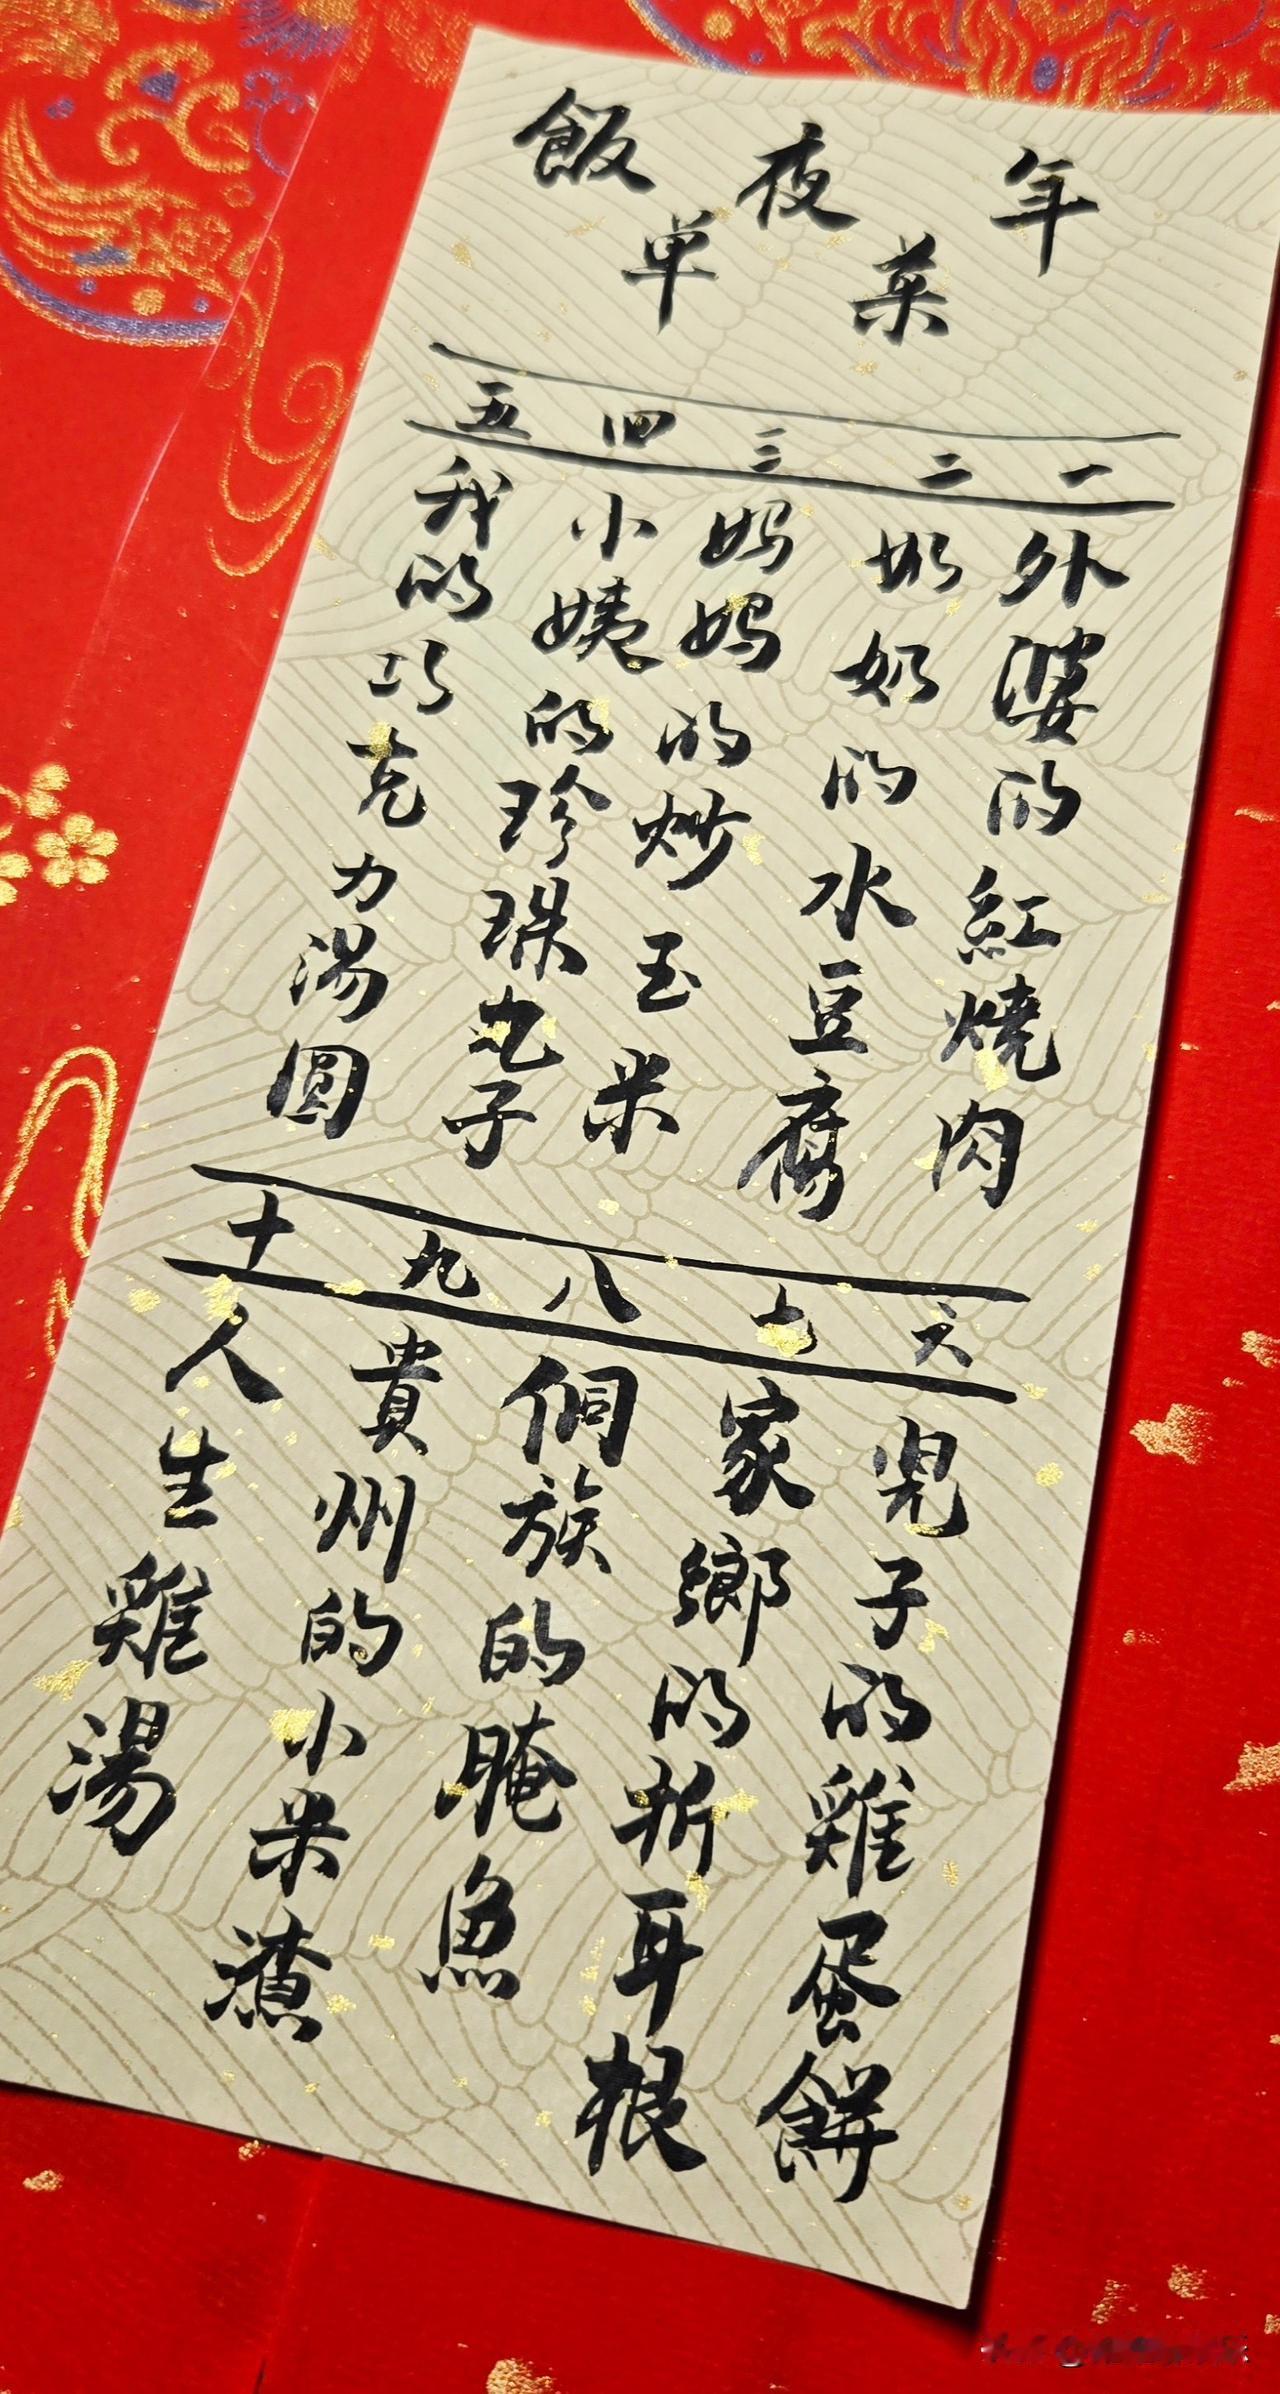 年夜飯
菜单
一
外婆的紅燒肉
二
奶奶的水豆腐
三
妈妈的炒玉米
四
小姨的珍珠丸子
五
我的巧克力湯圓
六
兒子的雞蛋餅
七
家鄉的折耳根
八
侗族的腌魚
九
貴州的小米渣
十
人生雞湯